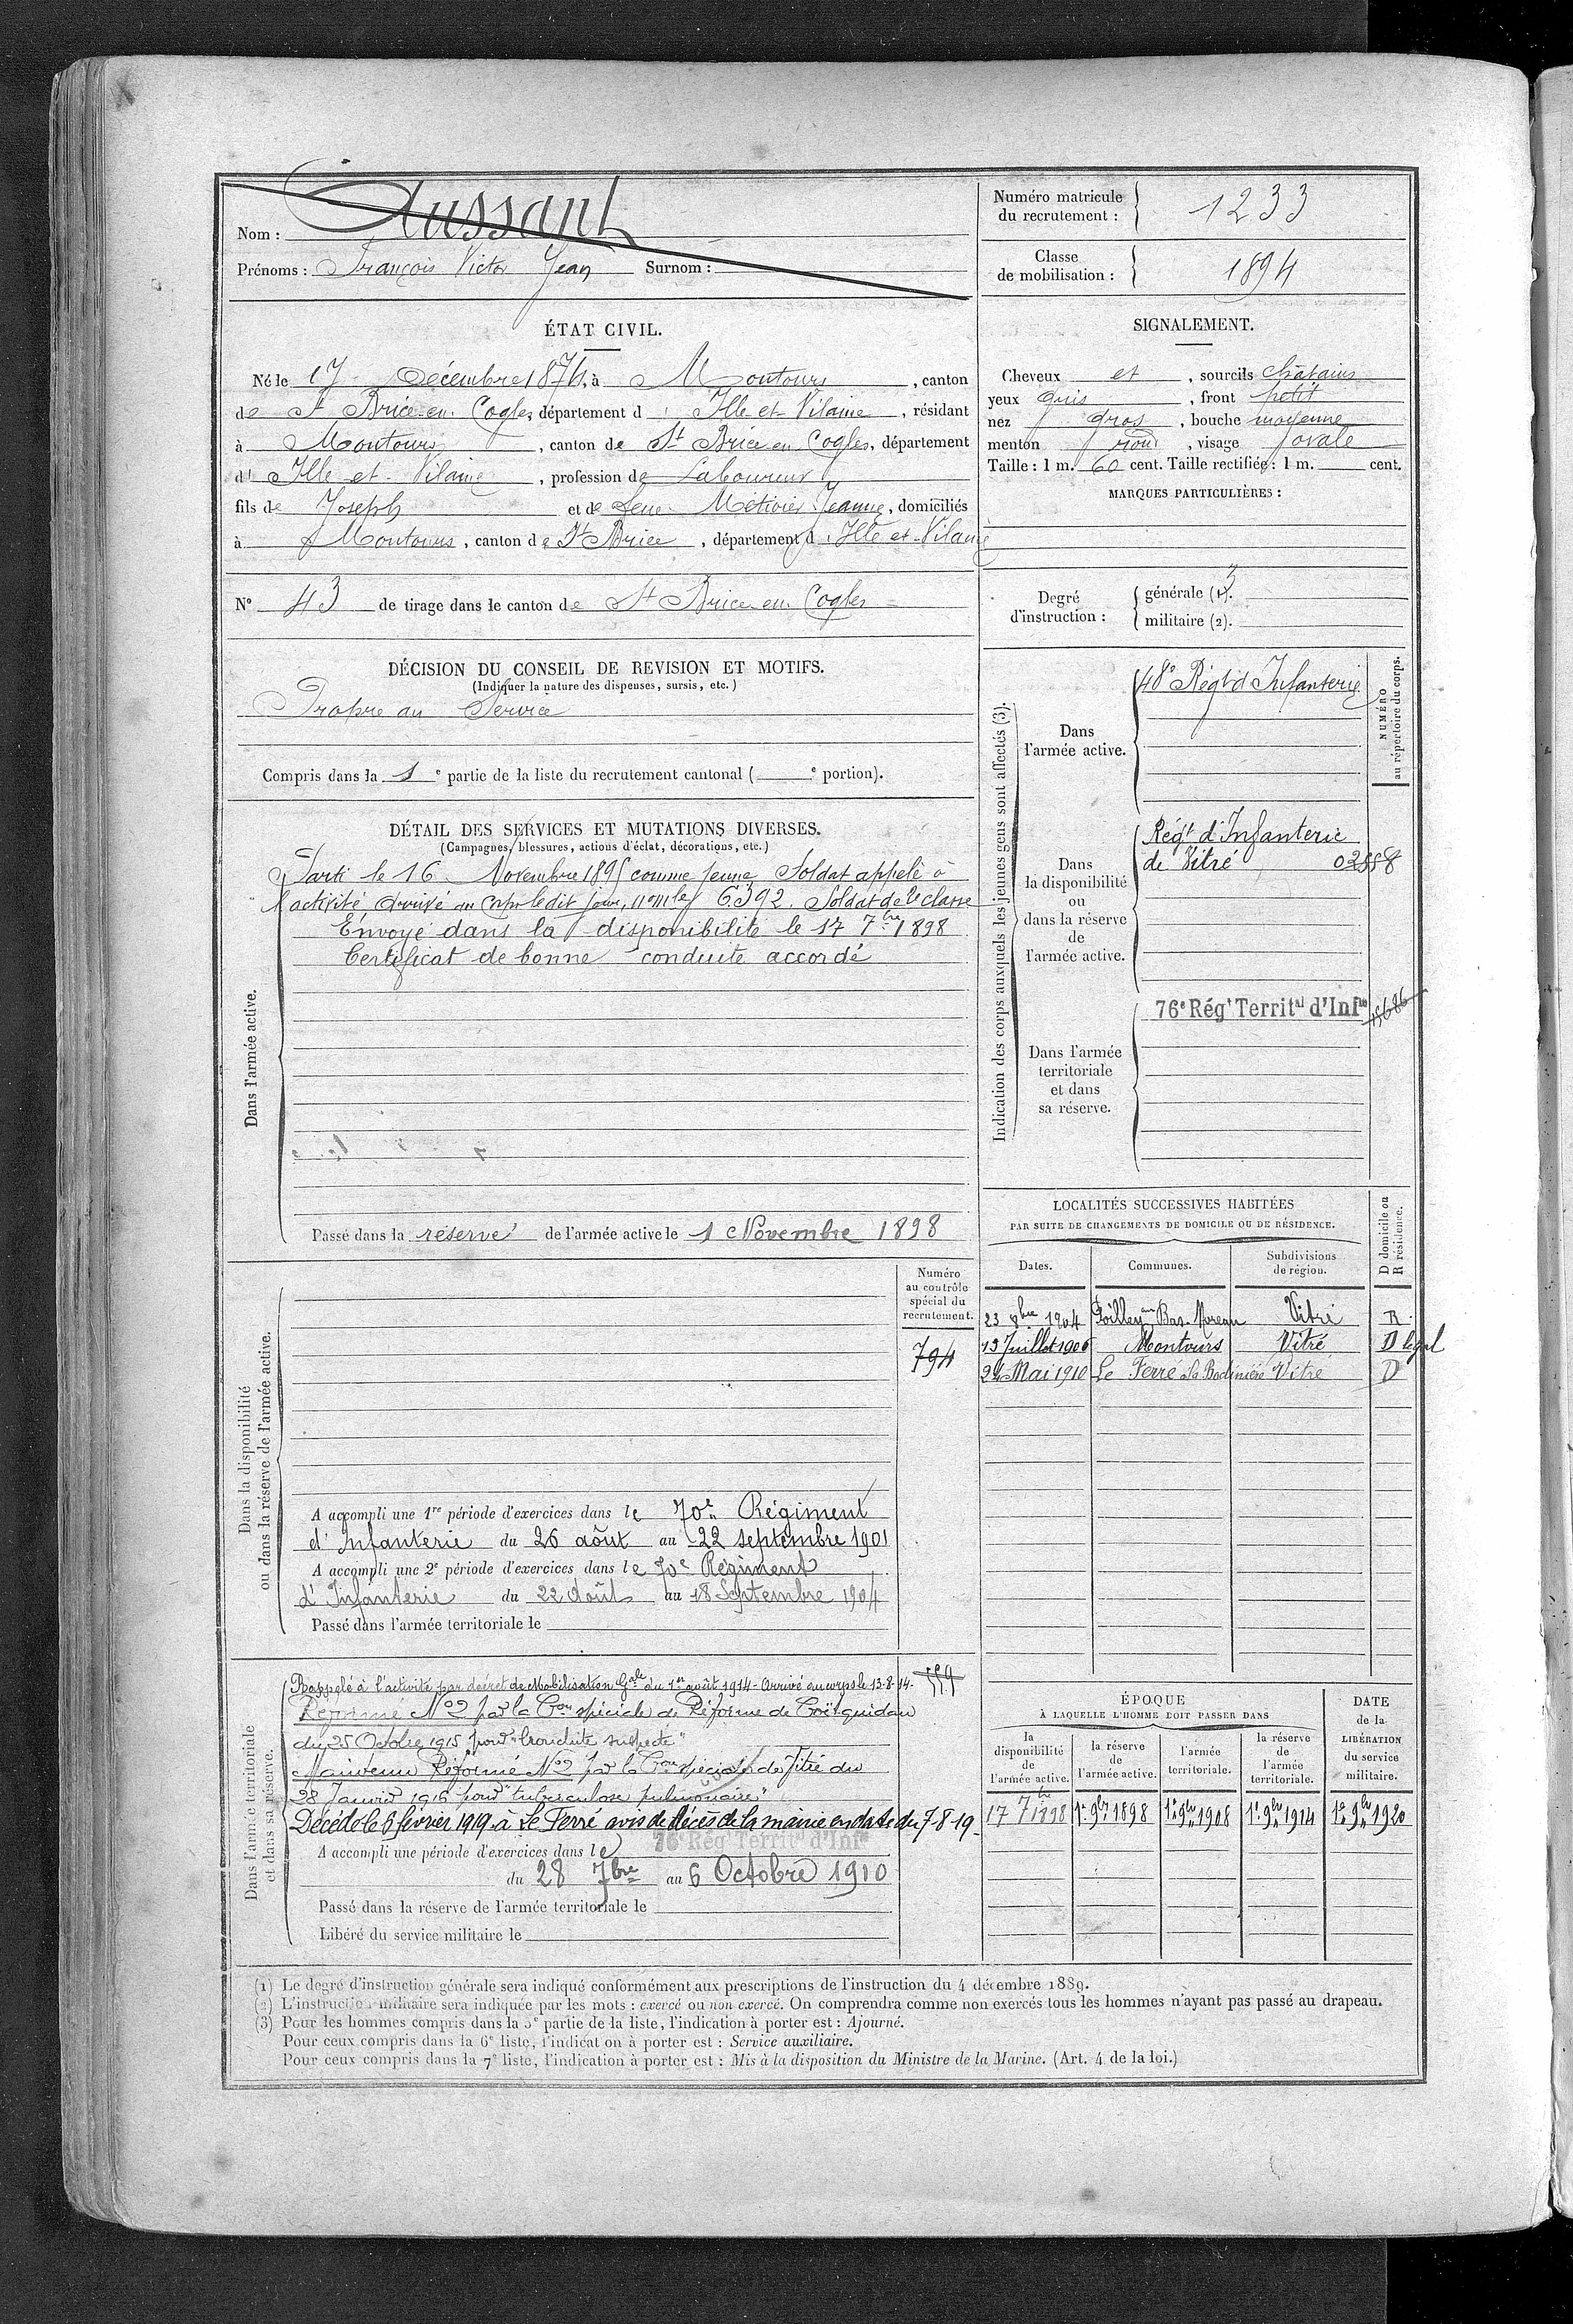 Nom : Aussant
Prénoms : François Victor Jean Surnom :
Numéro matricule du recrutement : 1233
Classe de mobilisation : 1894
ÉTAT CIVIL.
Né le 17 Décembre 1874, à Montours, canton
de St Brice-en-Cogles, département d'Ille-et-Vilaine, résidant
à Montours, canton de St Brice en Cogles, département
d'Ille-et-Vilaine, profession de Laboureur
fils de Joseph et de feue Métivier Jeanne, domiciliés
à Montours, canton de St Brice, département d'Ille-et-Vilaine
N° 43 de tirage dans le canton de St Brice-en-Cogles
SIGNALEMENT.
Cheveux et, sourcils châtains
yeux gris, front petit
nez gros, bouche moyenne
menton rond, visage ovale
Taille : 1 m. 60 cent. Taille rectifiée : 1 m. cent.
MARQUES PARTICULIÈRES :
Degré d'instruction : générale (1). 3
militaire (2).
DÉCISION DU CONSEIL DE REVISION ET MOTIFS.
(Indiquer la nature des dispenses, sursis, etc.)
Propre au Service
Compris dans la 1e partie de la liste du recrutement cantonal ( e portion).
DÉTAIL DES SERVICES ET MUTATIONS DIVERSES.
(Campagnes, blessures, actions d'éclat, décorations, etc.)
Dans l'armée active.
Parti le 16 Novembre 1895 comme jeune Soldat appelé à
l'activité arrivé au Corps ledit jour, nº mle 6392. Soldat de 2e classe
Envoyé dans la disponibilité le 17 7bre 1898
Certificat de bonne conduite accordé
Passé dans la réserve de l'armée active le 1 Novembre 1898
Indication des corps auxquels les jeunes gens sont affectés (3).
NUMÉRO au répertoire du corps.
Dans l'armée active.
48e Régt d'Infanterie
Dans la disponibilité ou dans la réserve de l'armée active.
Régt d'Infanterie
de Vitré
Dans l'armée territoriale et dans sa réserve.
76e Régt Territal d'Infie
15686
LOCALITÉS SUCCESSIVES HABITÉES
PAR SUITE DE CHANGEMENTS DE DOMICILE OU DE RÉSIDENCE.
D domicile ou R résidence.
Dates. Communes. Subdivisions de région.
23 8bre 1904 Poilley au Bas-Moreau Vitré R.
13 Juillet 1906 Montours Vitré D légal
24 Mai 1910 Le Ferré à la Bodinière Vitré D
Dans la disponibilité ou dans la réserve de l'armée active.
Numéro au contrôle spécial du recrutement.
794
A accompli une 1re période d'exercices dans le 70e Régiment
d'Infanterie du 26 août au 22 septembre 1901
A accompli une 2e période d'exercices dans le 70e Régiment
d'Infanterie du 22 Août au 18 Septembre 1904
Passé dans l'armée territoriale le
Dans l'armée territoriale et dans sa réserve.
Rappelé à l'activité par décret de Mobilisation Gale du 1er août 1914 - Arrivé au corps le 13-8-14-
Réformé Nº2 par la Con spéciale de Réforme de Coëtquidan
du 25 Octobre 1915 pour "bronchite suspecte"
Maintenu Réformé Nº2 par la Con spéciale de Vitré du
28 Janvier 1916 pour "tuberculose pulmonaire"
Décédé le 6 février 1919 à Le Ferré avis de décès de la mairie en date du 7-8-19-
A accompli une période d'exercices dans le 76e Régt Territal d'Infie
du 28 7bre au 6 Octobre 1910
Passé dans la réserve de l'armée territoriale le
Libéré du service militaire le
ÉPOQUE
À LAQUELLE L'HOMME DOIT PASSER DANS
la disponibilité de l'armée active. la réserve de l'armée active. l'armée territoriale. la réserve de l'armée territoriale. DATE de la LIBÉRATION du service militaire.
17 7bre 1898 1er 9bre 1898 1er 9bre 1908 1er 9bre 1914 1er 9bre 1920
(1) Le degré d'instruction générale sera indiqué conformément aux prescriptions de l'instruction du 4 décembre 1889.
(2) L'instruction militaire sera indiquée par les mots : exercé ou non exercé. On comprendra comme non exercés tous les hommes n'ayant pas passé au drapeau.
(3) Pour les hommes compris dans la 5e partie de la liste, l'indication à porter est : Ajourné.
Pour ceux compris dans la 6e liste, l'indication à porter est : Service auxiliaire.
Pour ceux compris dans la 7e liste, l'indication à porter est : Mis à la disposition du Ministre de la Marine. (Art. 4 de la loi.)